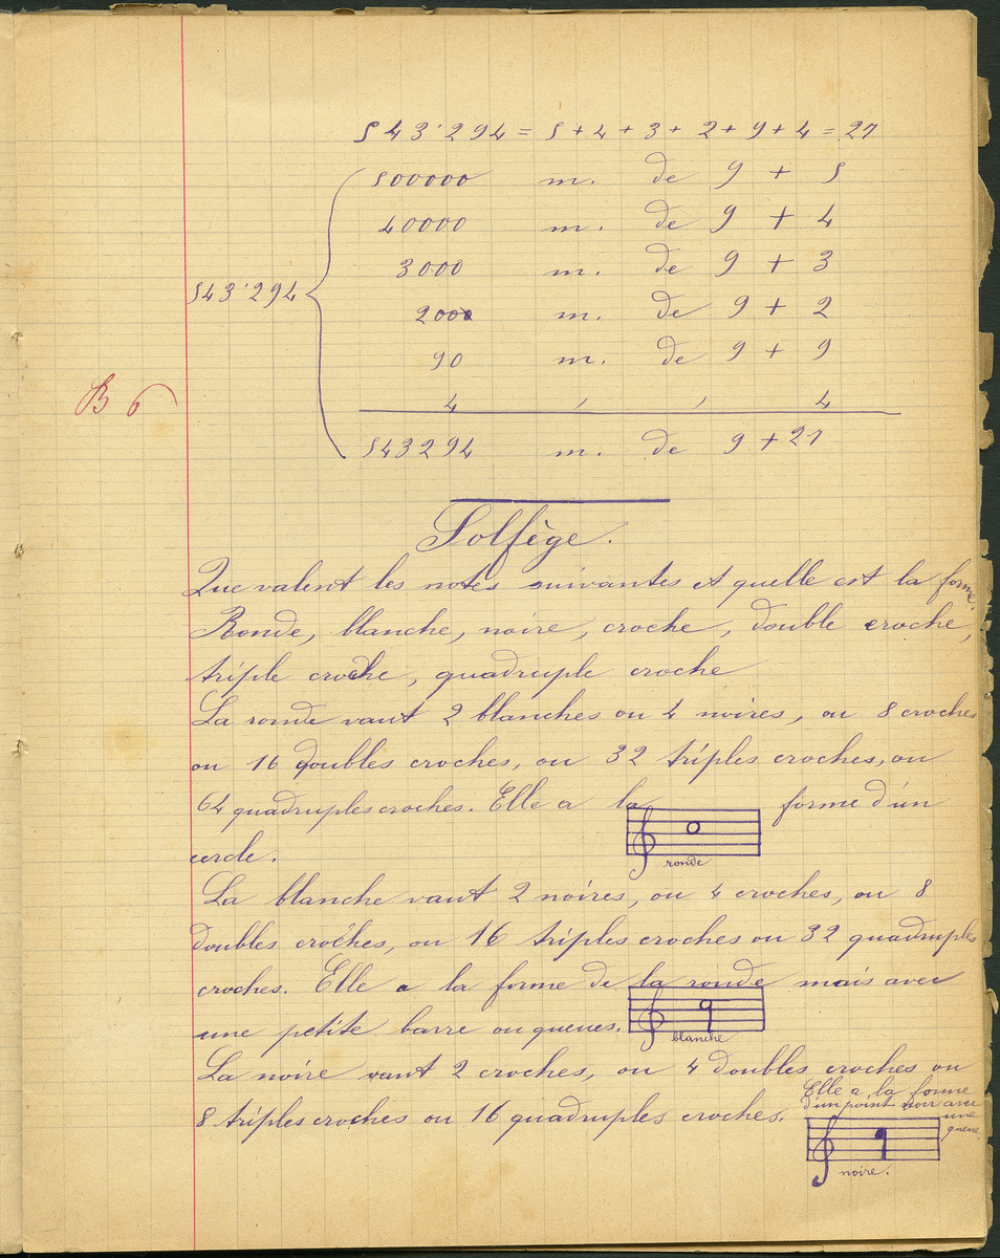 543'294 = 5 + 4 + 3 + 2 + 9 + 4 = 27
500000 m. de 9 + 5
40000 m. de 9 + 4
3000 m. de 9 + 3
543'294
2000 m. de 9 + 2
90 m. de 9 + 9
B 6
4 , , 4
543294 m. de 9 + 27
Solfège.
Que valent les notes suivantes et quelle est la forme.
Ronde, blanche, noire, croche, double croche,
triple croche, quadruple croche
La ronde vaut 2 blanches ou 4 noires, ou 8 croches
ou 16 doubles croches, ou 32 triples croches, ou
64 quadruples croches. Elle a la forme d'un
ronde
cercle.
La blanche vaut 2 noires, ou 4 croches, ou 8
doubles croches, ou 16 triples croches ou 32 quadruples
croches. Elle a la forme de la ronde mais avec
une petite barre ou queues.
blanche
La noire vaut 2 croches, ou 4 doubles croches ou
8 triples croches ou 16 quadruples croches.
Elle a la forme
d'un point noir avec
une
queue.
noire.